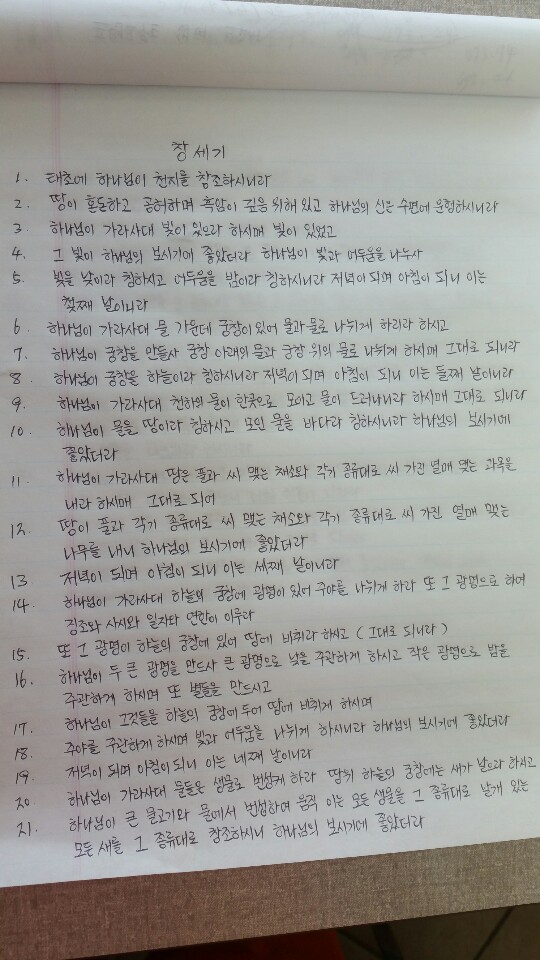 창세기
1. 태초에 하나님이 천지를 창조하시니라
2. 땅이 혼돈하고 공허하며 흑암이 깊음 위해 있고 하나님의 신은 수면에 운행하시니라
3 하나님이 가라사대 빛이 있으라 하시매 빛이 있었고
4. 그 빛이 하나님의 보시기에 좋았더라 하나님이 빛과 어두움을 나누사
5. 빛을 낮이라 칭하시고 어두움을 밤이라 칭하시니라 저녁이 되며 아침이 되니 이는
첫째 날이니라
6. 하나님이 가라사대 물 가운데 궁창이 있어 물과 물로 나뉘게 하리라 하시고
7. 하나님이 궁창을 만들사 궁창 아래의 물과 궁창 위의 물로 나뉘게 하시매 그대로 되니라
8. 하나님이 궁창을 하늘이라 칭하시니라 저녁이 되며 아침이 되니 이는 둘째 날이니라
9. 하나님이 가라사대 천하의 물이 한곳으로 모이고 물이 드러나니라 하시매 그대로 되니라
10. 하나님이 물을 땅이라 칭하시고 모인 물을 바다라 칭하시니라 하나님의 보시기에
좋았더라
11. 하나님이 가라사대 땅은 풀과 씨 맺는 채소와 각기 종류대로 씨 가진 열매 맺는 과목을
내라 하시매 그대로 되어
12. 땅이 풀과 각기 종류대로 씨 맺는 채소와 각기 종류대로 씨 가진 열매 맺는
나무를 내니 하나님의 보시기에 좋았더라
13 저녁이 되며 아침이 되니 이는 세째 날이니라
14. 하나님이 가라사대 하늘의 궁창에 광명이 있어 주야를 나뉘게 하라 또 그 광명으로 하여
징조와 사시와 일자와 연한이 이루라
15. 또 그 광명이 하늘의 궁창에 있어 땅에 비취라 하시고 (그대로 되니라)
16. 하나님이 두 큰 광명을 만드사 큰 광명으로 낮을 주관하게 하시고 작은 광명으로 밤을
주관하게 하시며 또 별들을 만드시고
17. 하나님이 그것들을 하늘의 궁창에 두어 땅에 비취게 하시며
18. 주야를 주관하게 하시며 빛과 어두움을 나뉘게 하시니라 하나님의 보시기에 좋았더라
19. 저녁이 되며 아침이 되니 이는 네째 날이니라
20 하나님이 가라사대 물들은 생물로 번성케 하라 땅위 하늘의 궁창에는 새가 날으라 하시고
21. 하나님이 큰 물고기와 물에서 번성하여 움직 이는 모든 생물을 그 종류대로 날개 있는
모든 새를 그 종류대로 창조하시니 하나님의 보시기에 좋았더라